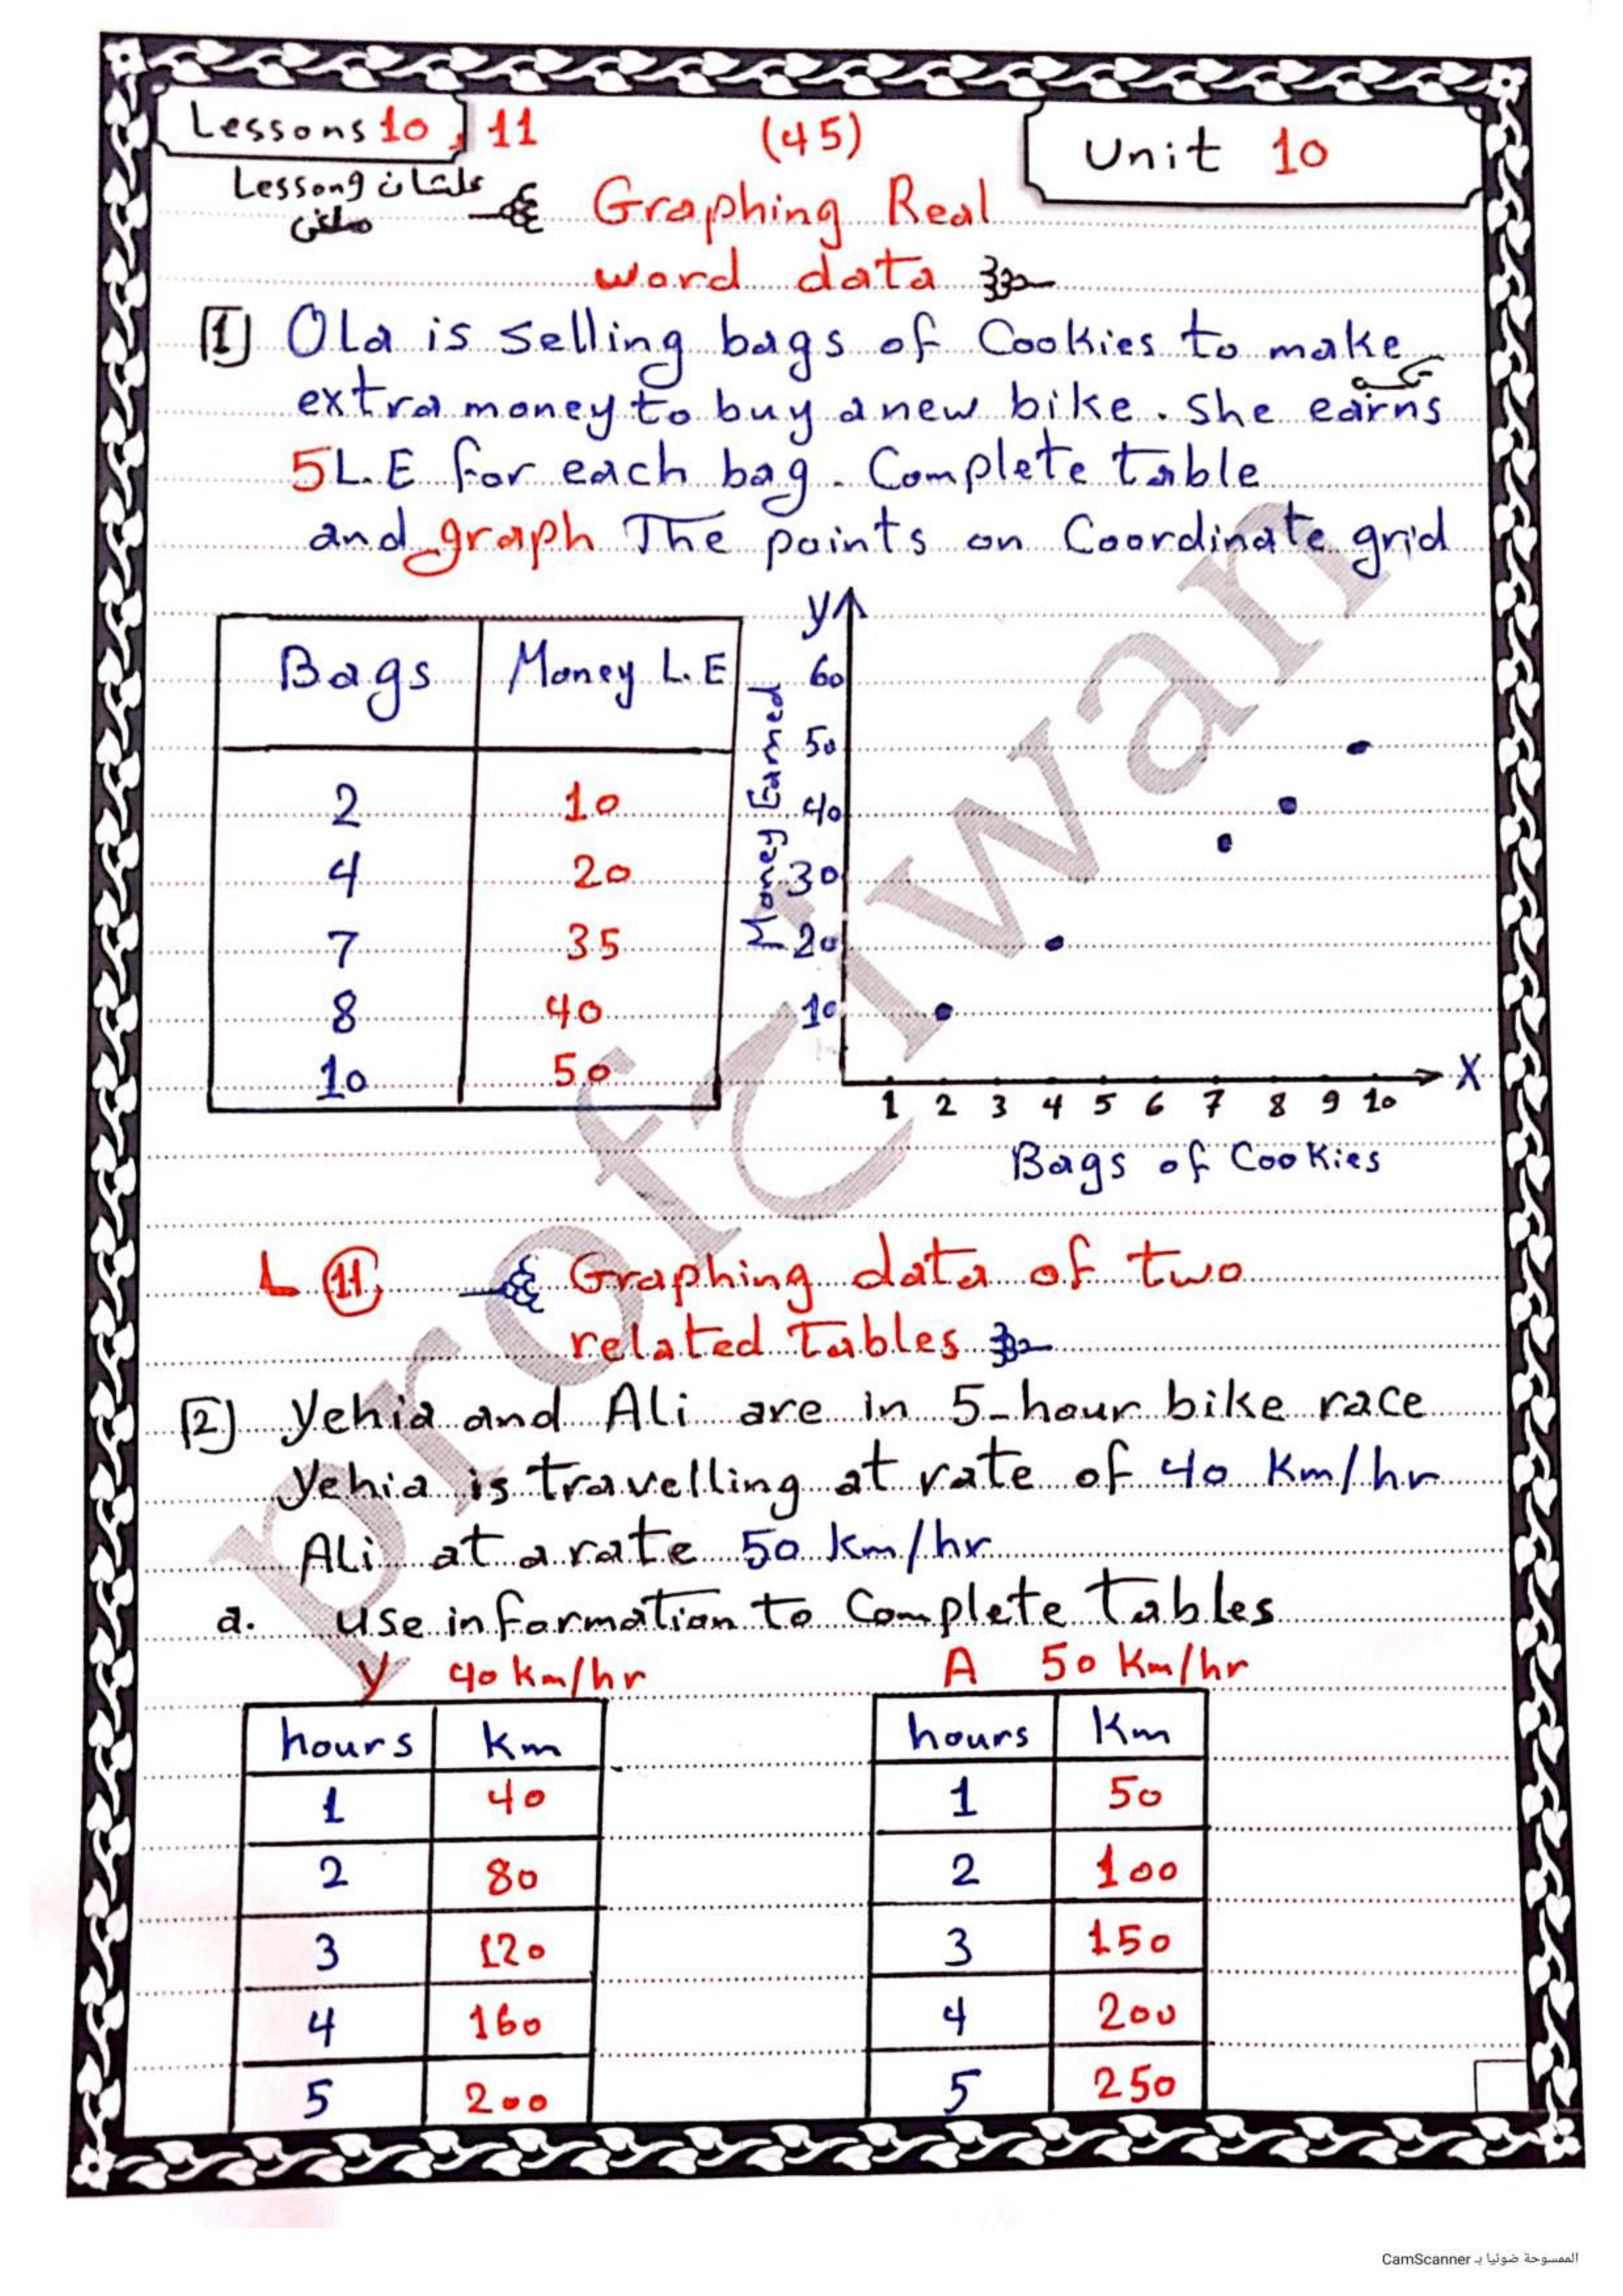 Lessons 10, 11
(45)
Unit 10
Lesson9 علشان
ملغى
Graphing Real
word data
[1] Ola is selling bags of Cookies to make
تكسب
extra money to buy a new bike. She earns
5 L.E for each bag. Complete table
and graph The points on Coordinate grid
Bags Money L.E
2 10
4 20
7 35
8 40
10 50
y
Money Earned
60
50
40
30
20
10
X
1 2 3 4 5 6 7 8 9 10
Bags of Cookies
L 11 Graphing data of two
related Tables
[2] Yehia and Ali are in 5-hour bike race
Yehia is travelling at rate of 40 Km/hr
Ali at a rate 50 km/hr
a. use information to Complete Tables
Y 40 km/hr
hours km
1 40
2 80
3 120
4 160
5 200
A 50 Km/hr
hours Km
1 50
2 100
3 150
4 200
5 250
prof Ciwan
الممسوحة ضوئيا بـ CamScanner